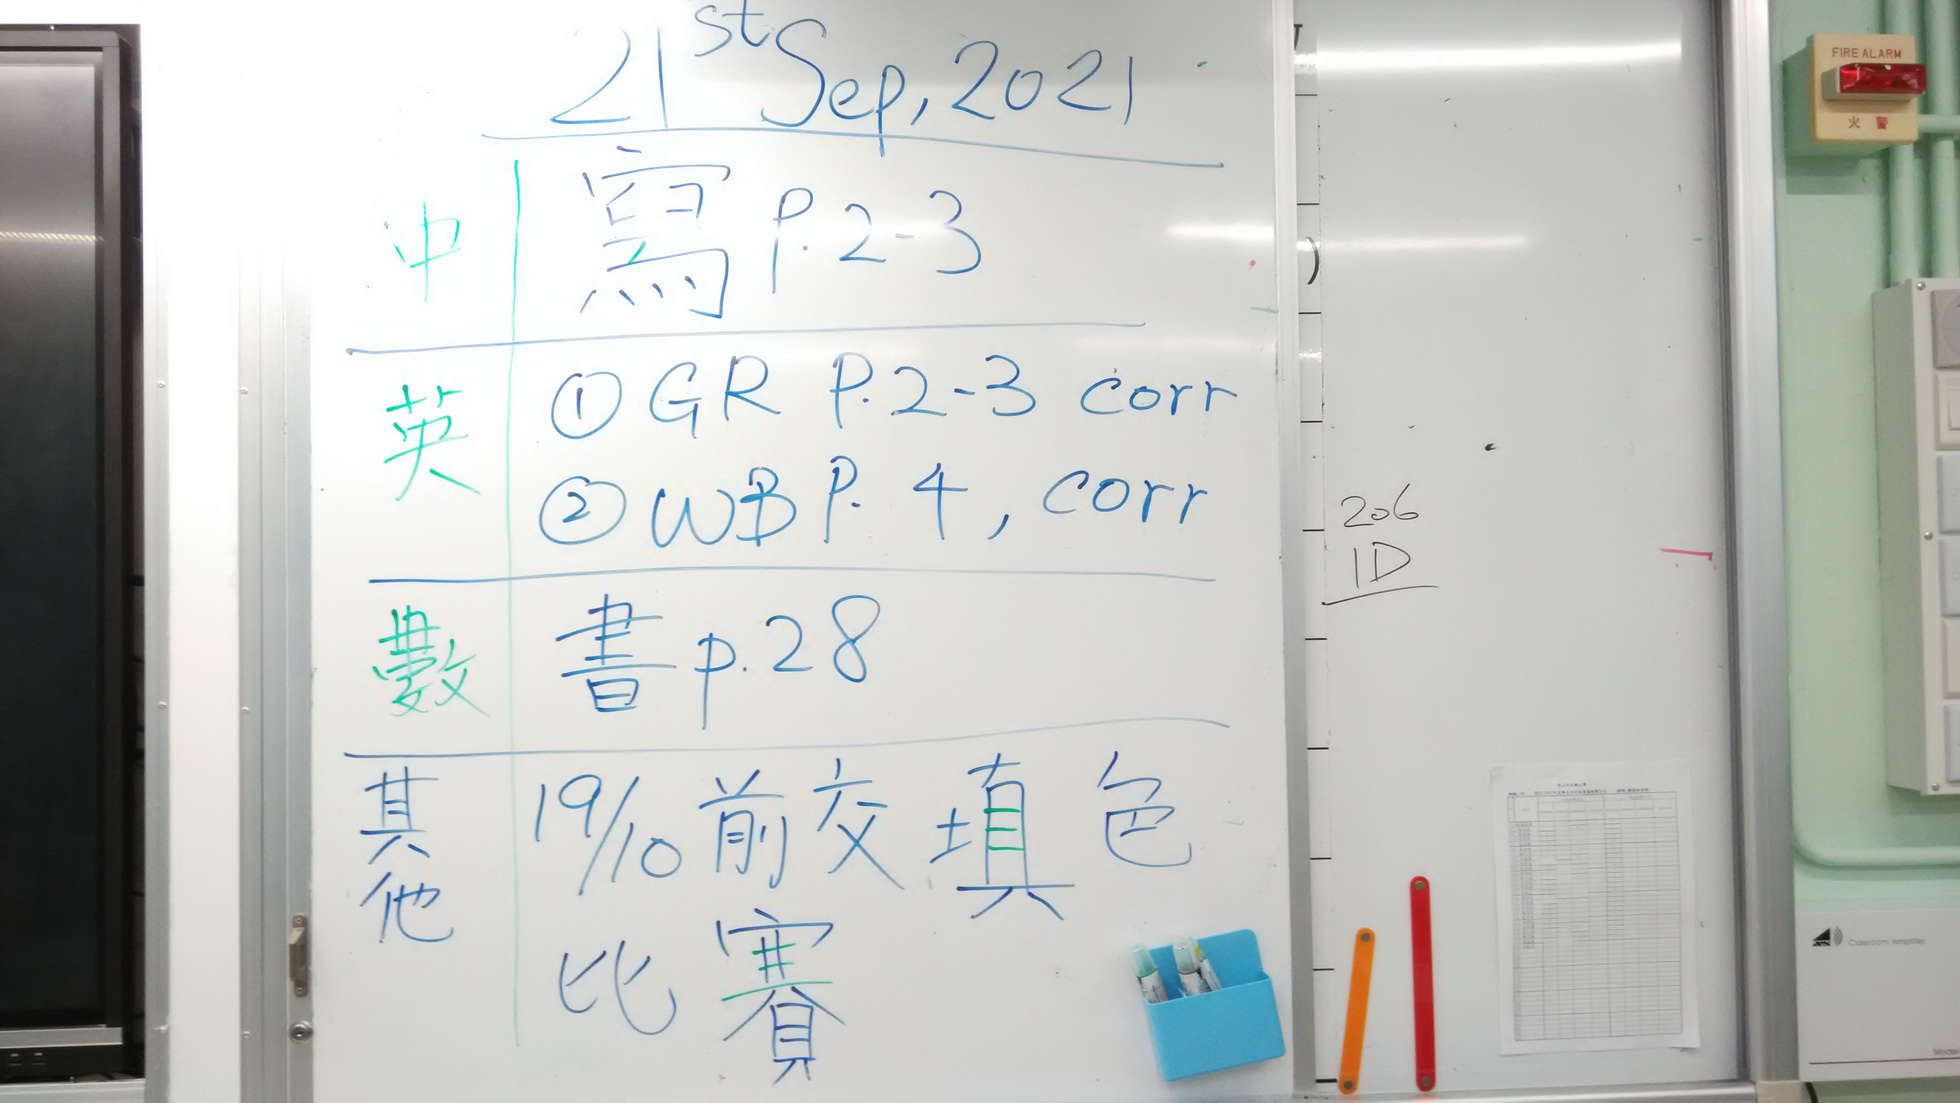 21st Sep, 2021
中 寫 P.2-3
英 ① GR P.2-3 corr
② WB P. 4, corr
數 書 p.28
其他 19/10 前交填色
比賽
206
1D
FIRE ALARM
火警
Classroom Amplifier